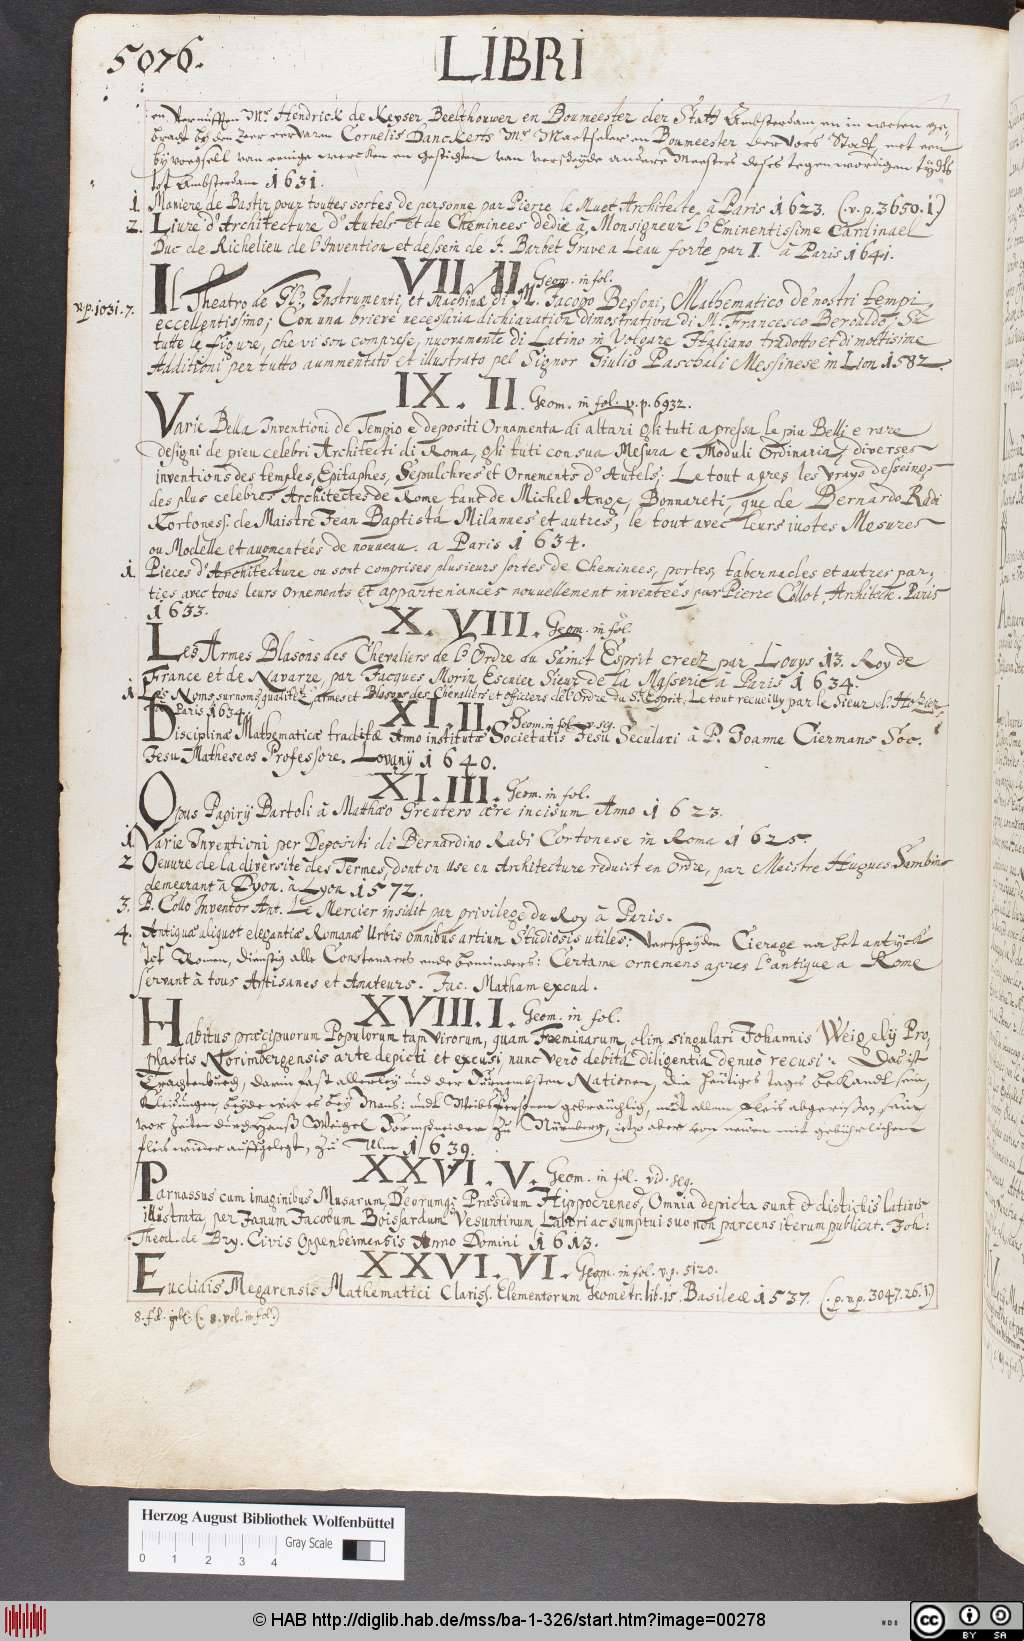 5076.
LIBRI
en Vernufften Mr. Hendrick de Keyser Beelthouwer en Boumeester der Statt Ambsterdam en in wesen ge-
bracht by den Zeer eervaren Cornelis Danckerts Mr. Maetselaer en Boumeester der vors Stadt, met een
by voechsell van eenige wercken en Gestichten van verscheyde andere Meesters deses tegenwordigen tijdts
tot Ambsterdam 1631.
1. Maniere de Bastir pour toutes sortes de personne par Pierre le Muet Architecte à Paris 1623. (v. p. 3650. 1)
2. Liure d'Architecture d'Autels et de Cheminees dedie à Monsigneur l'Eminentissime Cardinael
Duc de Richelieu de l'Invention et dessein de J. Barbet Grave a Leau forte par I. à Paris 1641.
VII. II. Geom. in fol.
v. p. 1031. 7.
Il Theatro de Gl. Instrumenti, et Machinæ di M. Jacopo Bessoni, Mathematico de nostri tempi
eccellentissimo; Con una brieve necessaria dichiaration dimostrativa di M. Francesco Beroaldo, Su
tutte le figure, che vi son comprese, nuovamente di Latino in Volgare Italiano tradotto et di moltissime
Additioni per tutto aummentato et illustrato pel Signor Giulio Paschali Messinese in Lion 1582.
IX. II. Geom. in fol. v. p. 6932.
Varie Bella Inventioni de Tempio e depositi Ornamenta di altari gli tuti apressa le piu Belli e rare
designi de pieu celebri Architecti di Roma, gli tuti con sua Mesura e Moduli Ordinaria, diverses
inventions des temples, Epitaphes, Sepulchres et Ornements d'Autels; Le tout apres les vrays desseings
des plus celebras Architectes de Rome tant de Michel Ange, Bonnareti, que de Bernardo Radi
Kortones: de Maistre Jean Baptista Milannes et autres, le tout avec leurs justes Mesures
ou Modelle et augmentées de nouveau. a Paris 1634.
1. Pieces d'Architecture ou sont comprises plusieurs sortes de Cheminees, portes, tabernacles et autres par,
ties avec tous leurs ornements et appartenances nouvellement inventées par Pierre Collot, Architecte. Paris
1633.
X. VIII. Geom. in fol.
Les Armes Blasons des Chevaliers de l'Ordre du Sainct Esprit creez par Louys 13. Roy de
France et de Navarre, par Jacques Morin Escuier Sieur de la Masserie à Paris 1634.
1. Les Noms, surnoms, qualitez, armes et Blasons des Chevaliers et officiers de l'Ordre du S. Esprit, Le tout recueilly par le Sieur d'Hozier,
Paris 1634.
XI. II. Geom. in fol. v. seq.
Disciplinæ Mathematicæ traditæ Anno institutæ Societatis Jesu Seculari à P. Joanne Ciermans Soc.
Jesu Matheseos Professore. Lovanij 1640.
XI. III. Geom. in fol.
Opus Papirij Bartoli à Mathæo Greutero ære incisum Anno 1623.
1. Varie Inventioni per Depositi di Bernardino Radi Cortonese in Roma 1625.
2 Oeuure de la diversite des Termes, dont on Use en Architecture reduict en Ordre, par Maistre Hugues Sambin
demeurant à Dyon. à Lyon 1572.
3. P. Collo Inventor Ant. Le Mercier insidit par privilege du Roy à Paris.
4. Antiquæ aliquot elegantiæ Romanæ Urbis omnibus artium Studiosis utiles: Verscheyden Cierage na het antijck
tot Romen, dienstig alle Constenaers ende beminders: Certame ornemens apres l'antique a Rome
servant à tous Artisanes et Amateurs. Jac. Matham excud.
XVIII. I. Geom. in fol.
Habitus præcipuorum Populorum tam virorum, quam Fæminarum, olim singulari Johannis Weigelij Pro,
plastis Norimbergensis arte depicti et excusi, nunc vero debita diligentia denuo recusi: Das ist
Trachtenbuch, darin fast allerley und der Fürnembsten Nationen, die heutiges tags bekandt sein,
Kleidungen, beyde wie es bey Manns: undt Weibs Personen gebräuchlig, mit allem fleis abgerissen sein
vor zeiten durch Hanß Weigel Formschneider zu Nürnberg, ietz aber von neuen mit gebührlichem
fleis wieder auffgelegt, zu Ulm 1639.
XXVI. V. Geom. in fol. vid. seq.
Parnassus cum imaginibus Musarum, Deorumq; Præsidum Hippocrenes, Omnia depicta sunt & distichis latinis
illustrata per Janum Jacobum Boissardum Vesuntinum, Labori ac sumptui suo non parcens iterum publicat. Joh:
Theod. de Bry. Civis Oppenheimensis Anno Domini 1613.
XXVI. VI. Geom. in fol. v. p. 5120.
Euclidis Megarensis Mathematici Clariss. Elementorum Geometr. lib. 15 Basileæ 1537. (p. v. p. 3047. 26. 1)
8. vol. in fol.)
Herzog August Bibliothek Wolfenbüttel
Gray Scale
0 1 2 3 4
© HAB http://diglib.hab.de/mss/ba-1-326/start.htm?image=00278
WDB
cc BY SA